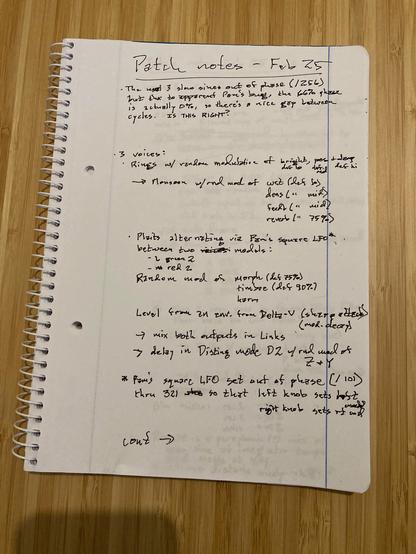 Patch notes - Feb 25
· The usual 3 slow sines out of phase (/256)
but due to apparent Pam's bug, the 66% phase
is actually 0%, so there's a nice gap between
cycles. IS THIS RIGHT?
3 voices:
· Rings w/ random modulation of bright, pos + damp
→ Monsoon w/ rnd mod of wet (def 50)
dens (" mid)
feedb (" mid)
reverb (" 75%)
· Plaits alternating via Pam's square LFO*
between two models:
- green 2
- red 2
Random mod of morph (def 75%)
timbre (def 90%)
harm
Level from an env. from Delta-V (sharp attack)
(mod. decay)
→ mix both outputs in Links
→ delay in Disting mode D2 w/ rnd mod of
Z + Y
* Pam's square LFO set out of phase (/101)
thru 321 so that left knob sets
right knob sets
cont →